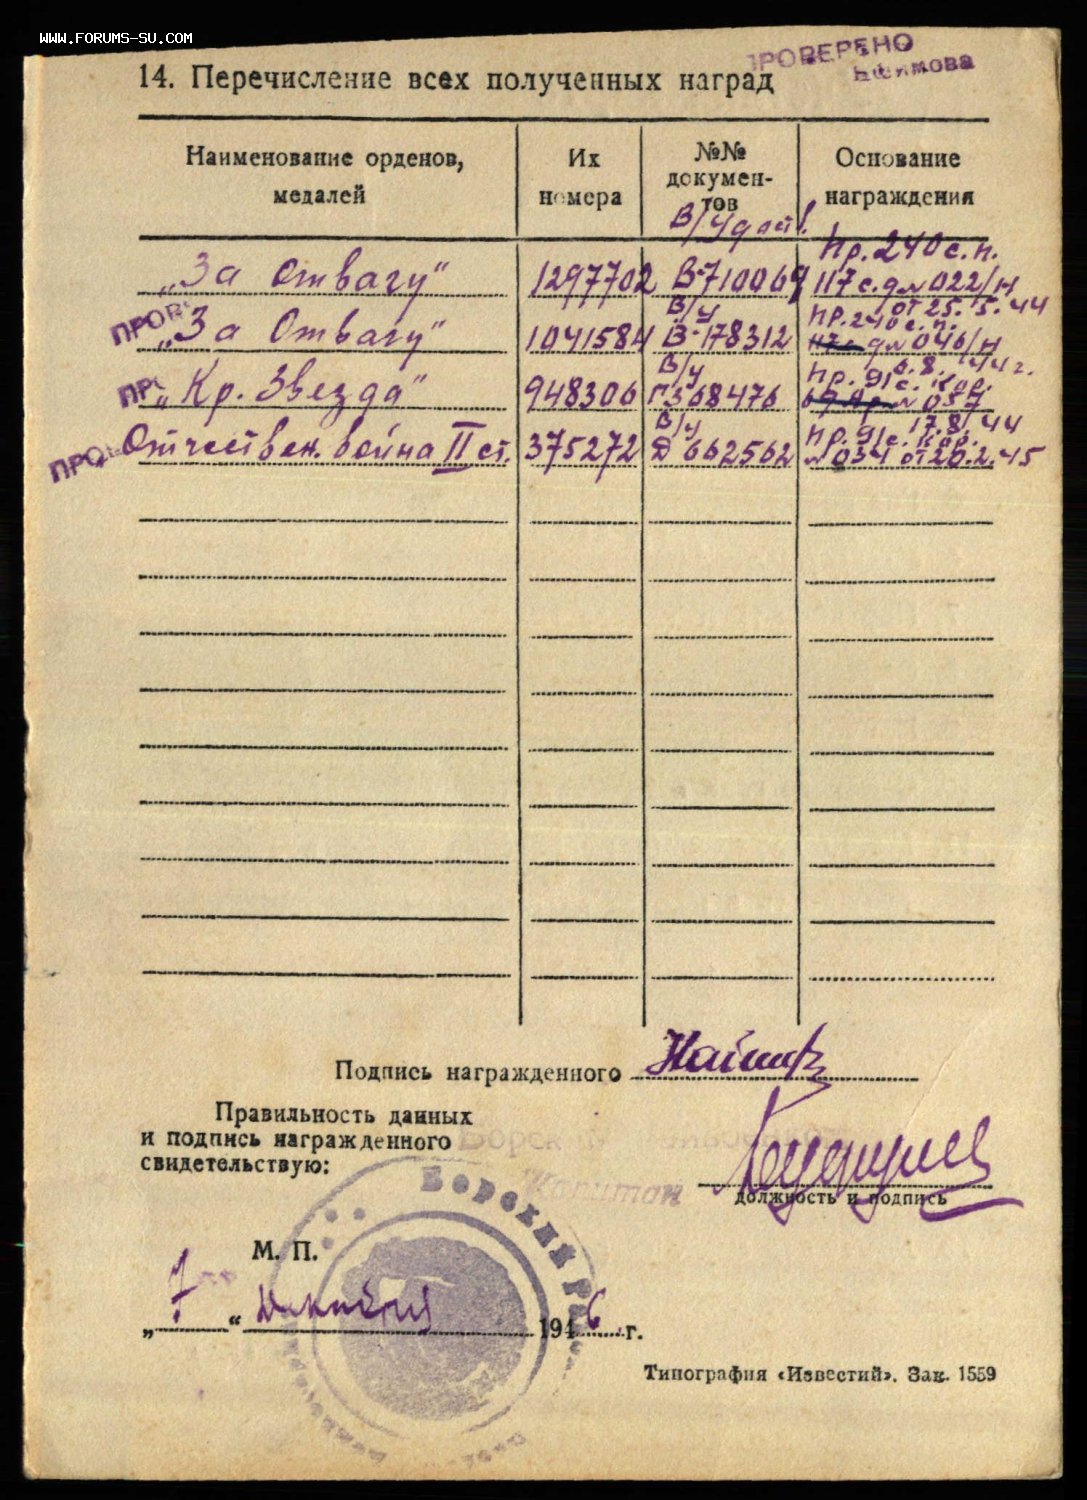 WWW.FORUMS-SU.COM
ПРОВЕРЕНО
Ефимова
14. Перечисление всех полученных наград
Наименование орденов, медалей
Их номера
№№ документов
Основание награждения
В/Удост.
„За отвагу“ 1297702 В-710069 Пр. 240 с.п. 117 с.д № 022/н от 25.5.44
ПРОВ
„За Отвагу“ 1041584 В/у В-178312 Пр. 240 с.п. 117 с. д № 046/н 6.8.44 г.
ПР
„Кр. Звезда“ 948306 В/у Г 368476 Пр. 91 с. кор. № 057 17.8.44
ПРО
Отчествен. война II ст. 375272 В/у Д 662562 Пр. 91 с. кор. № 034 от 20.2.45
Подпись награжденного
Правильность данных
и подпись награжденного
свидетельствую:
Капитан
должность и подпись
Борский
М. П.
„7“ декабря 1946 г.
Типография «Известий». Зак. 1559